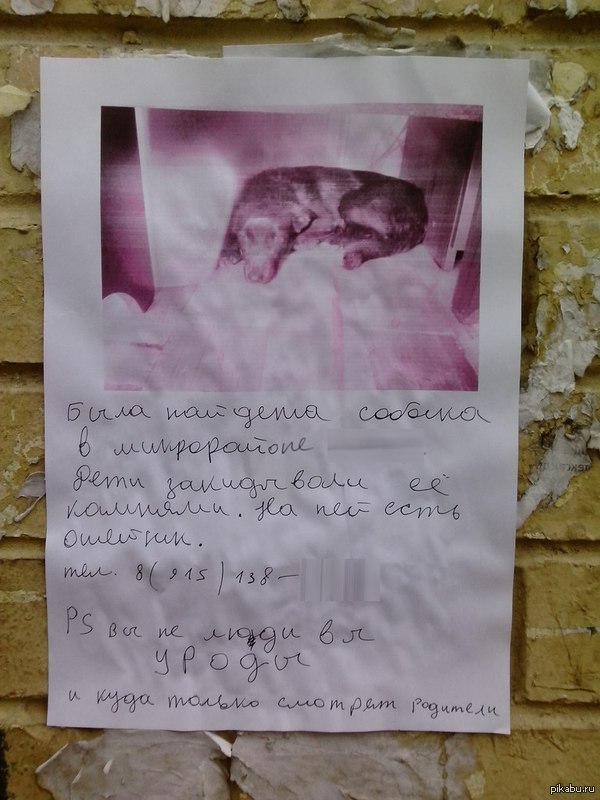 Была найдена собака
в микрорайоне
Дети закидывали её
камнями. На ней есть
ошейник.
тел. 8(915)138-
PS вы не люди вы
УРОДЫ
и куда только смотрят родители
pikabu.ru